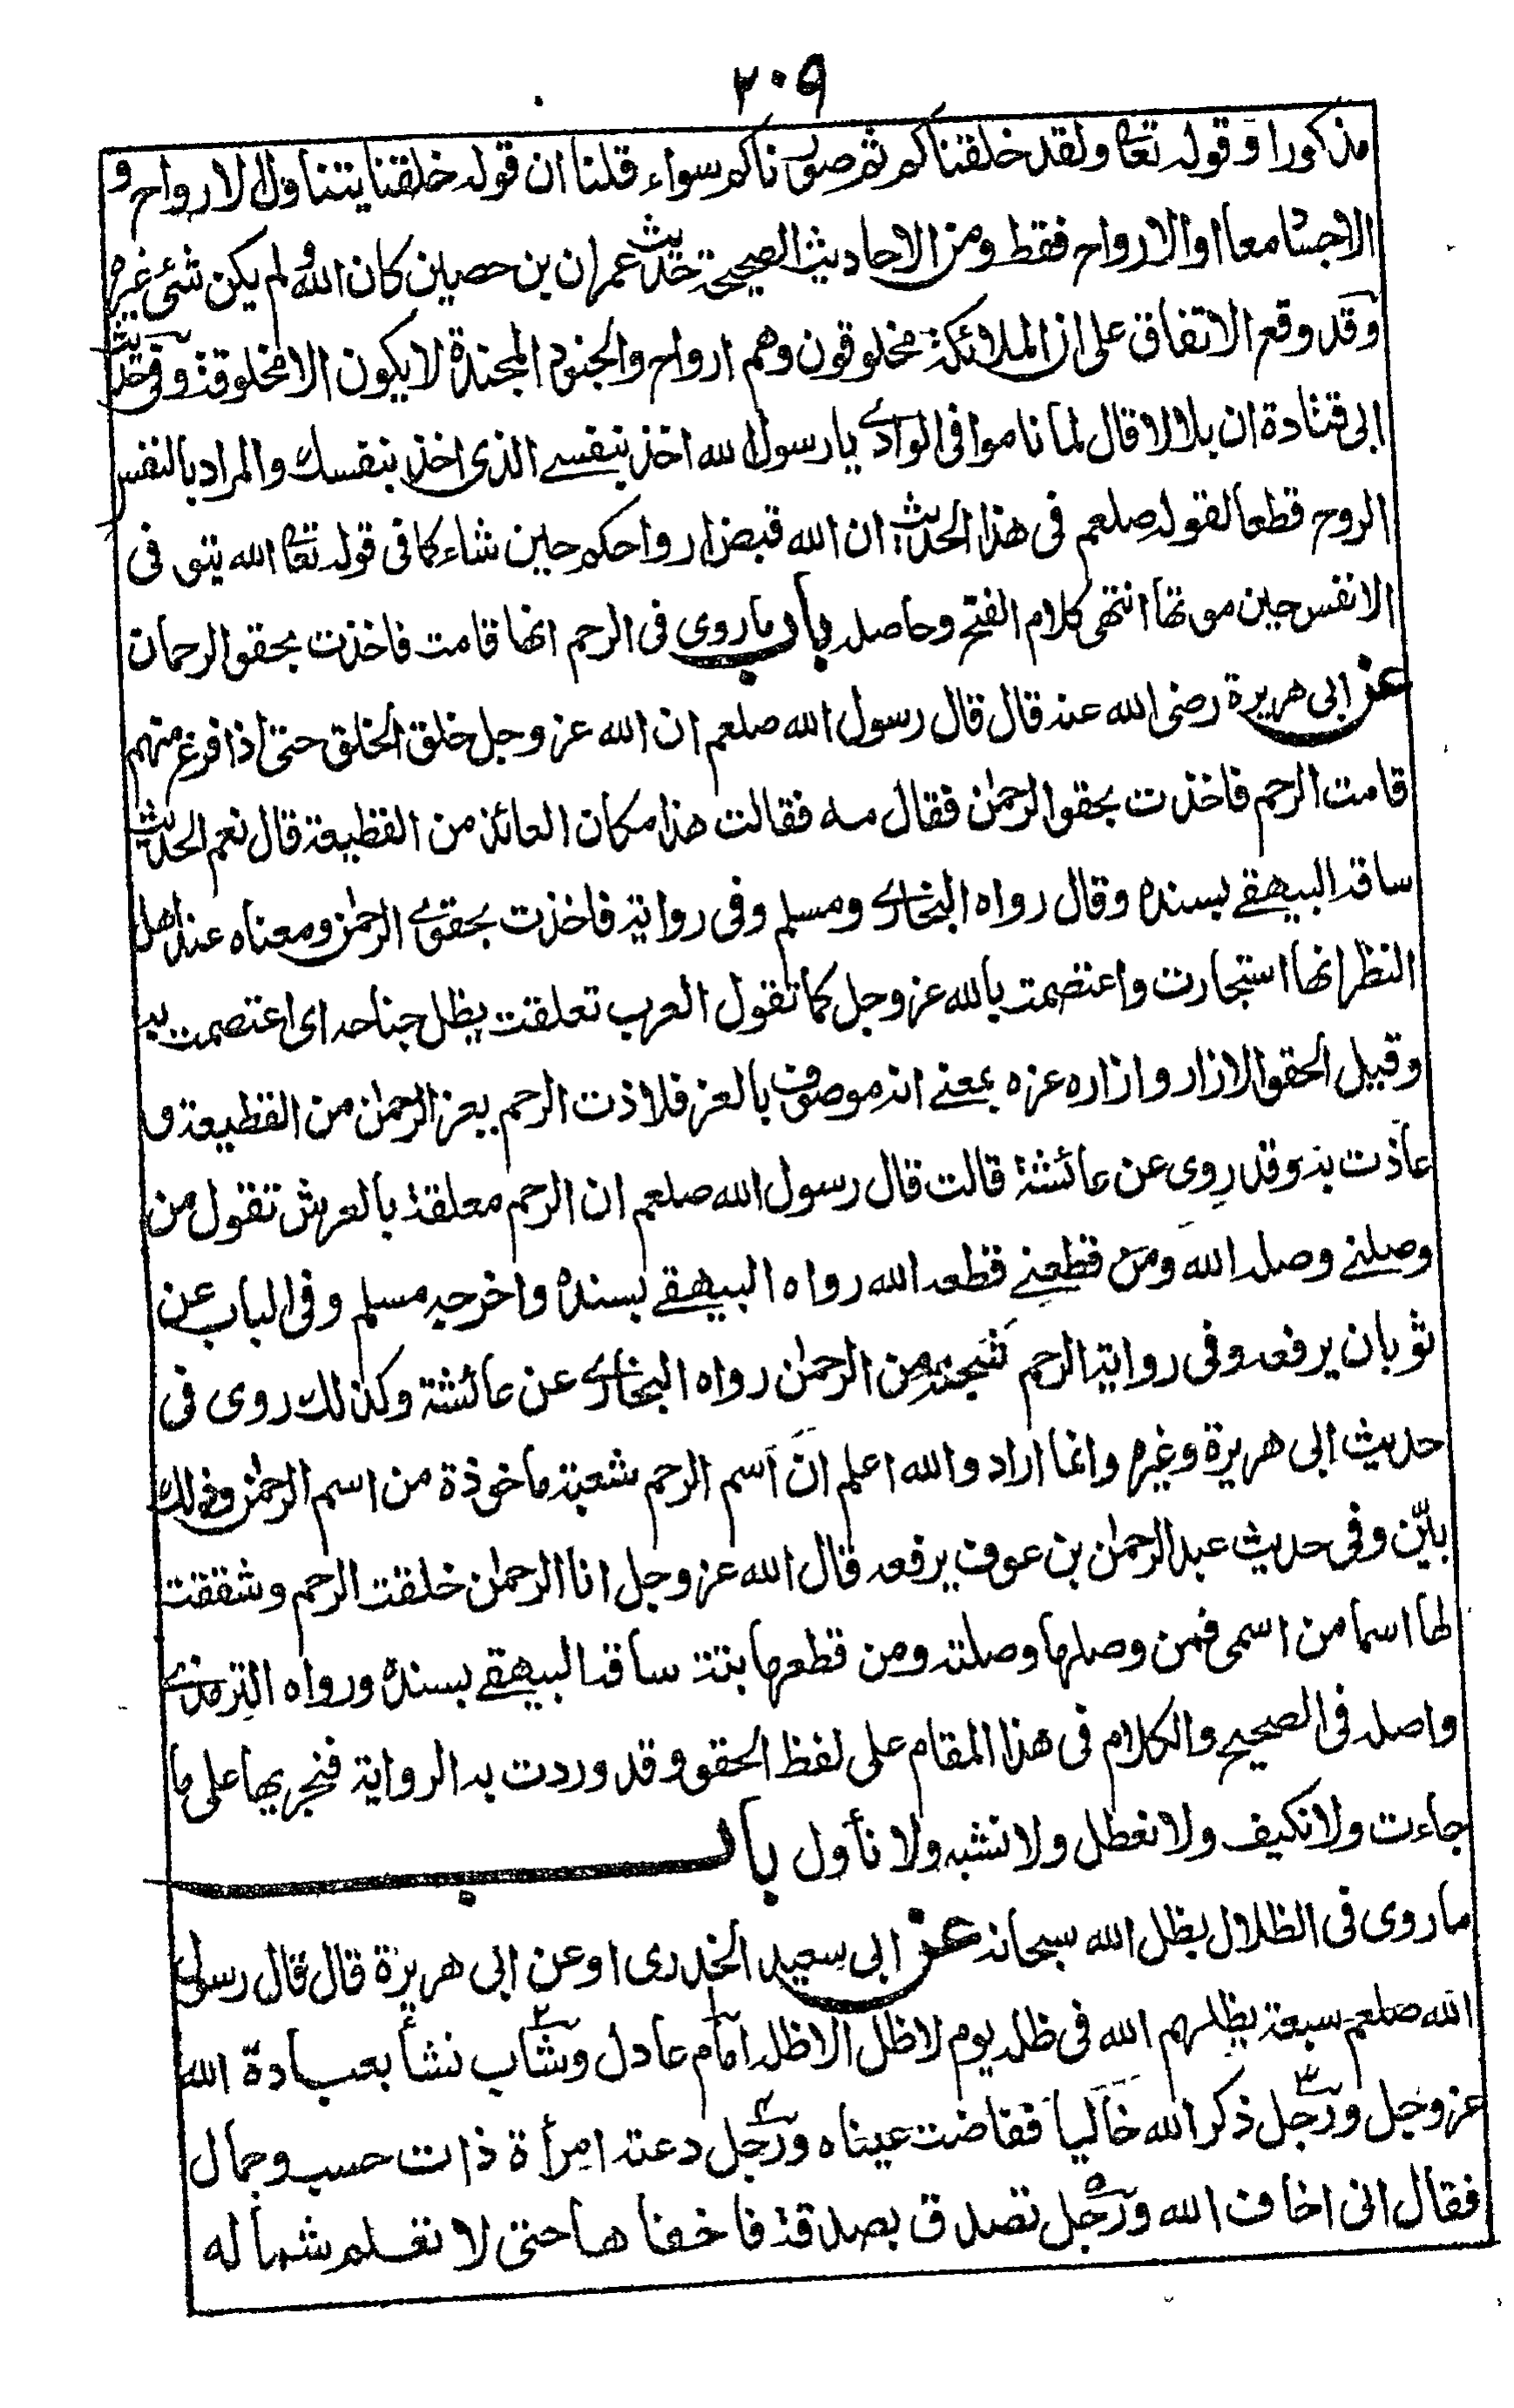 ٢٠٩
مذكورا وقوله تعا ولقد خلقناكم ثم صورناكم سواء قلنا ان قوله خلقنا يتناول الارواح و
الاجسا معا او الارواح فقط ومن الاحاديث الصحيحة حديث عمران بن حصين كان الله ولم يكن شئ غيره
وقد وقع الاتفاق على ان الملائكة مخلوقون وهم ارواح والجنود المجندة لا يكون الا مخلوقة وفى حديث
ابى قتادة ان بلالا قال لما ناموا فى الوادى يا رسول الله اخذ بنفسى الذى اخذ بنفسك والمراد بالنفس
الروح قطعا لقوله صلعم فى هذا الحديث ان الله قبض ارواحكم حين شاء كما فى قوله تعا الله يتوفى
الانفس حين موتها انتهى كلام الفتح وحاصله باب ما روى فى الرحم انها قامت فاخذت بحقو الرحمان
عن ابى هريرة رضى الله عنه قال قال رسول الله صلعم ان الله عز وجل خلق الخلق حتى اذا فرغ منهم
قامت الرحم فاخذت بحقو الرحمٰن فقال مه فقالت هذا مكان العائذ من القطيعة قال نعم الحديث
ساقه البيهقى بسنده وقال رواه البخارى ومسلم وفى رواية فاخذت بحقوى الرحمٰن ومعناه عند اهل
النظر انها استجارت واعتصمت بالله عز وجل كما تقول العرب تعلقت بظل جناحه اى اعتصمت به
وقيل الحقو الازار وازاره عزه بمعنى انه موصوف بالعز فلاذت الرحم بعز الرحمٰن من القطيعة و
عاذت به وقد روى عن عائشة قالت قال رسول الله صلعم ان الرحم معلقة بالعرش تقول من
وصلنى وصله الله ومن قطعنى قطعه الله رواه البيهقى بسنده واخرجه مسلم وفى الباب عن
ثوبان يرفعه وفى رواية الرحم شجنة من الرحمٰن رواه البخارى عن عائشة وكذلك روى فى
حديث ابى هريرة وغيره وانما اراد والله اعلم ان اسم الرحم شعبة ماخوذة من اسم الرحمٰن وذلك
بيّن وفى حديث عبد الرحمٰن بن عوف يرفعه قال الله عز وجل انا الرحمٰن خلقت الرحم وشققت
لها اسما من اسمى فمن وصلها وصلته ومن قطعها بتته ساقه البيهقى بسنده ورواه الترمذى
واصله فى الصحيح والكلام فى هذا المقام على لفظ الحقو وقد وردت به الرواية فنجريها على ما
جاءت ولا نكيف ولا نعطل ولا نشبه ولا نأول باب
ما روى فى الظلال بظل الله سبحانه عن ابى سعيد الخدرى او عن ابى هريرة قال قال رسول
الله صلعم سبعة يظلهم الله فى ظله يوم لا ظل الا ظله امام عادل وشاب نشأ بعبادة الله
عز وجل ورجل ذكر الله خاليا ففاضت عيناه ورجل دعته امرأة ذات حسب وجمال
فقال انى اخاف الله ورجل تصدق بصدقة فاخفاها حتى لا تعلم شماله